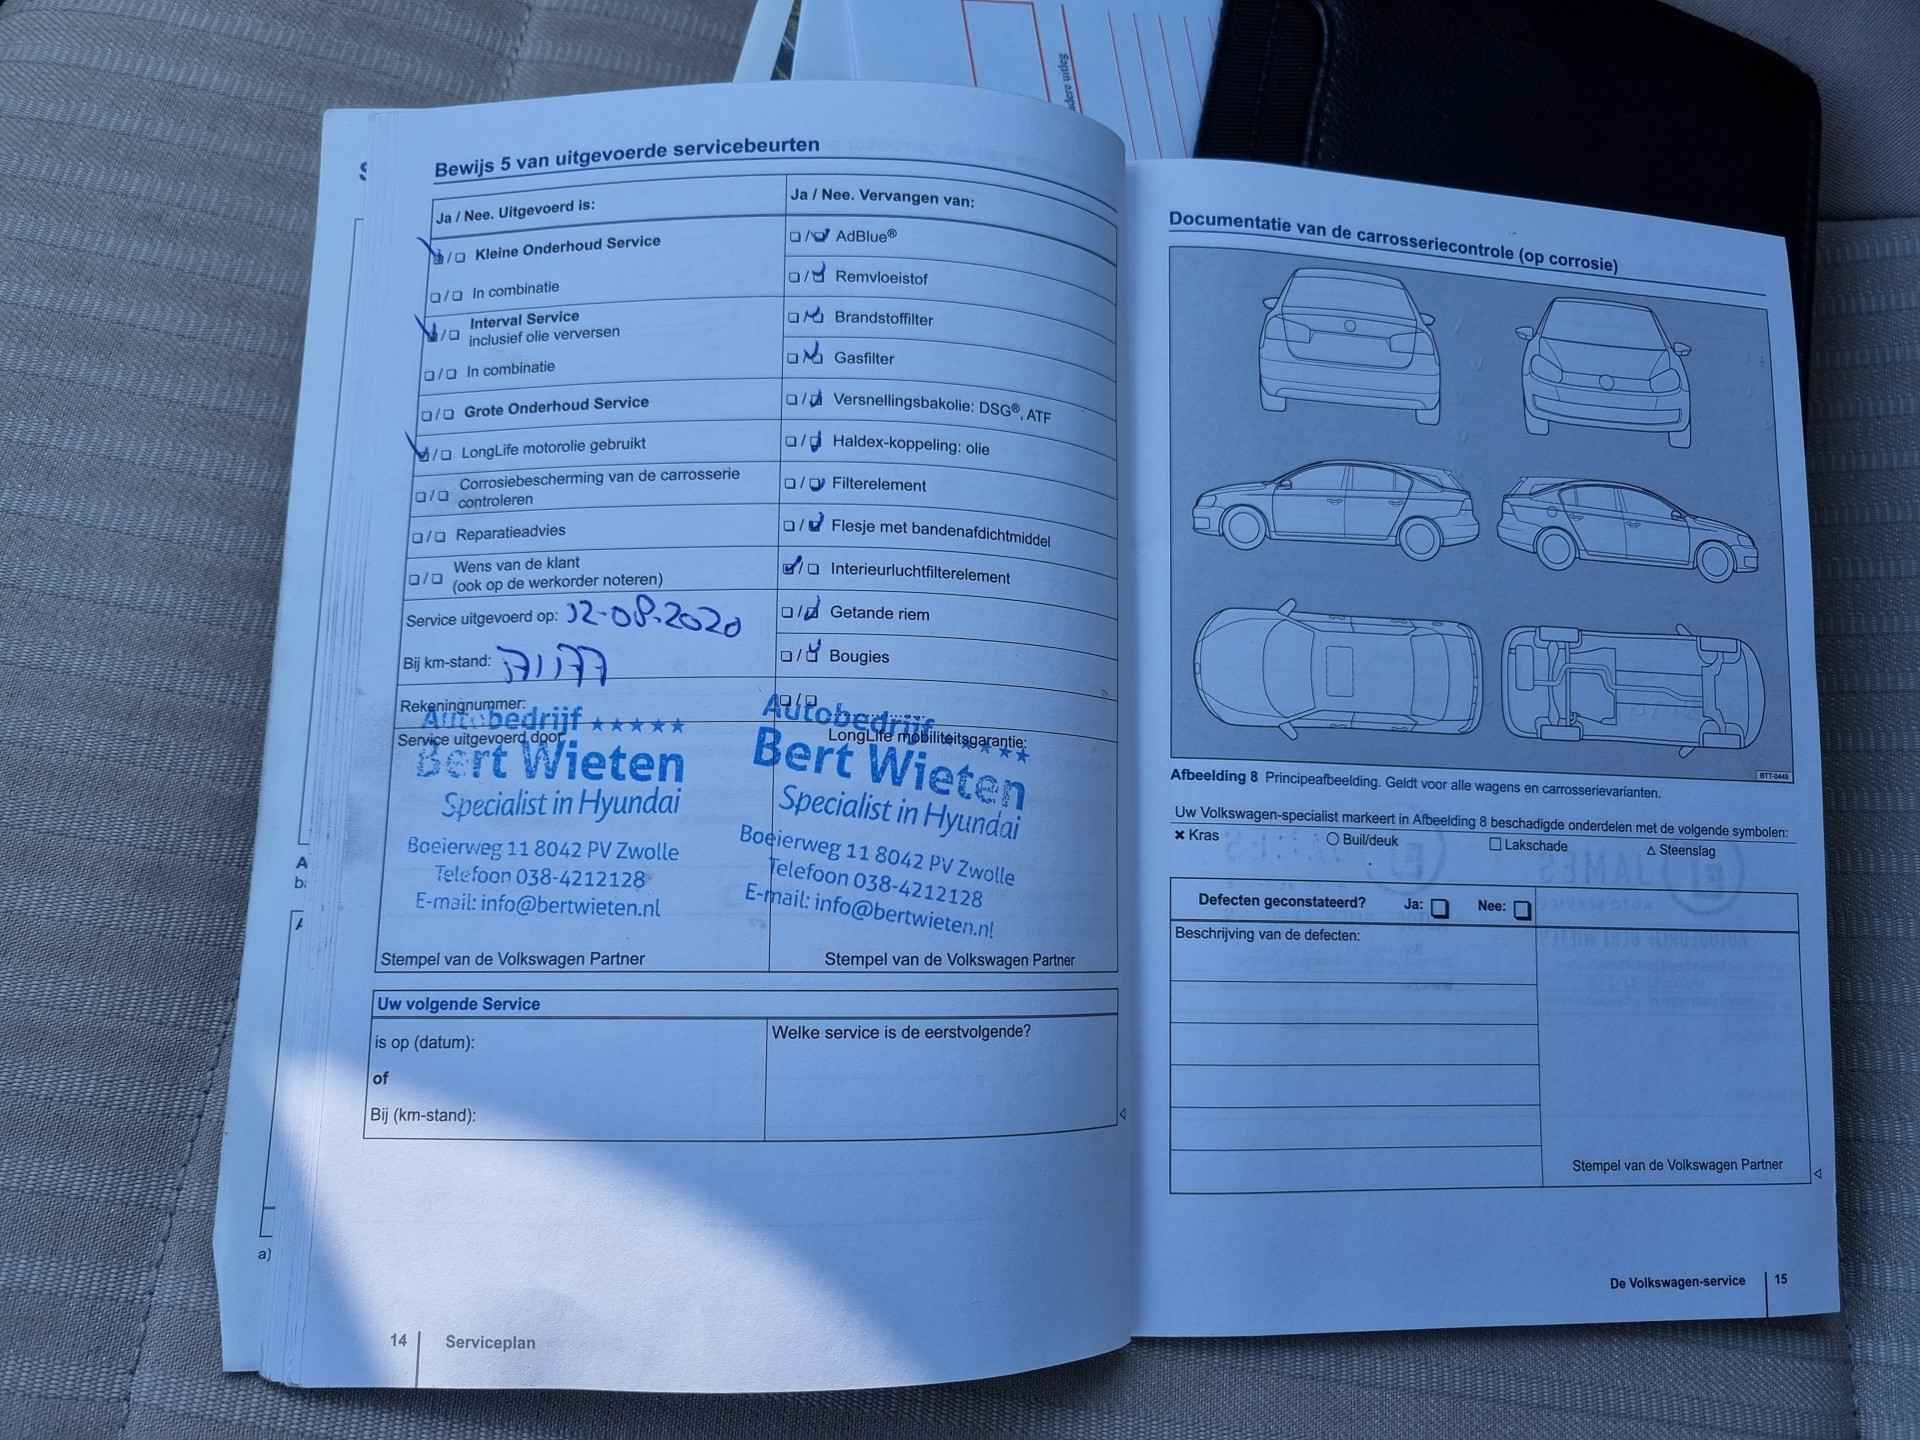 adere uitleg
Bewijs 5 van uitgevoerde servicebeurten
Ja / Nee. Uitgevoerd is:
Kleine Onderhoud Service
In combinatie
Interval Service
inclusief olie verversen
In combinatie
Grote Onderhoud Service
LongLife motorolie gebruikt
Corrosiebescherming van de carrosserie
controleren
Reparatieadvies
Wens van de klant
(ook op de werkorder noteren)
Service uitgevoerd op: 12-08-2020
Bij km-stand: 71177
Rekeningnummer:
Service uitgevoerd door
Autobedrijf ★★★★★
Bert Wieten
Specialist in Hyundai
Boeierweg 11 8042 PV Zwolle
Telefoon 038-4212128
E-mail: info@bertwieten.nl
Stempel van de Volkswagen Partner
Ja / Nee. Vervangen van:
AdBlue®
Remvloeistof
Brandstoffilter
Gasfilter
Versnellingsbakolie: DSG®, ATF
Haldex-koppeling: olie
Filterelement
Flesje met bandenafdichtmiddel
Interieurluchtfilterelement
Getande riem
Bougies
LongLife mobiliteitsgarantie:
Autobedrijf ★★★★★
Bert Wieten
Specialist in Hyundai
Boeierweg 11 8042 PV Zwolle
Telefoon 038-4212128
E-mail: info@bertwieten.nl
Stempel van de Volkswagen Partner
Uw volgende Service
is op (datum):
of
Bij (km-stand):
Welke service is de eerstvolgende?
a)
14 Serviceplan
Documentatie van de carrosseriecontrole (op corrosie)
BTT-0449
Afbeelding 8 Principeafbeelding. Geldt voor alle wagens en carrosserievarianten.
Uw Volkswagen-specialist markeert in Afbeelding 8 beschadigde onderdelen met de volgende symbolen:
✖ Kras ○ Buil/deuk □ Lakschade △ Steenslag
Defecten geconstateerd? Ja: Nee:
Beschrijving van de defecten:
Stempel van de Volkswagen Partner
De Volkswagen-service 15